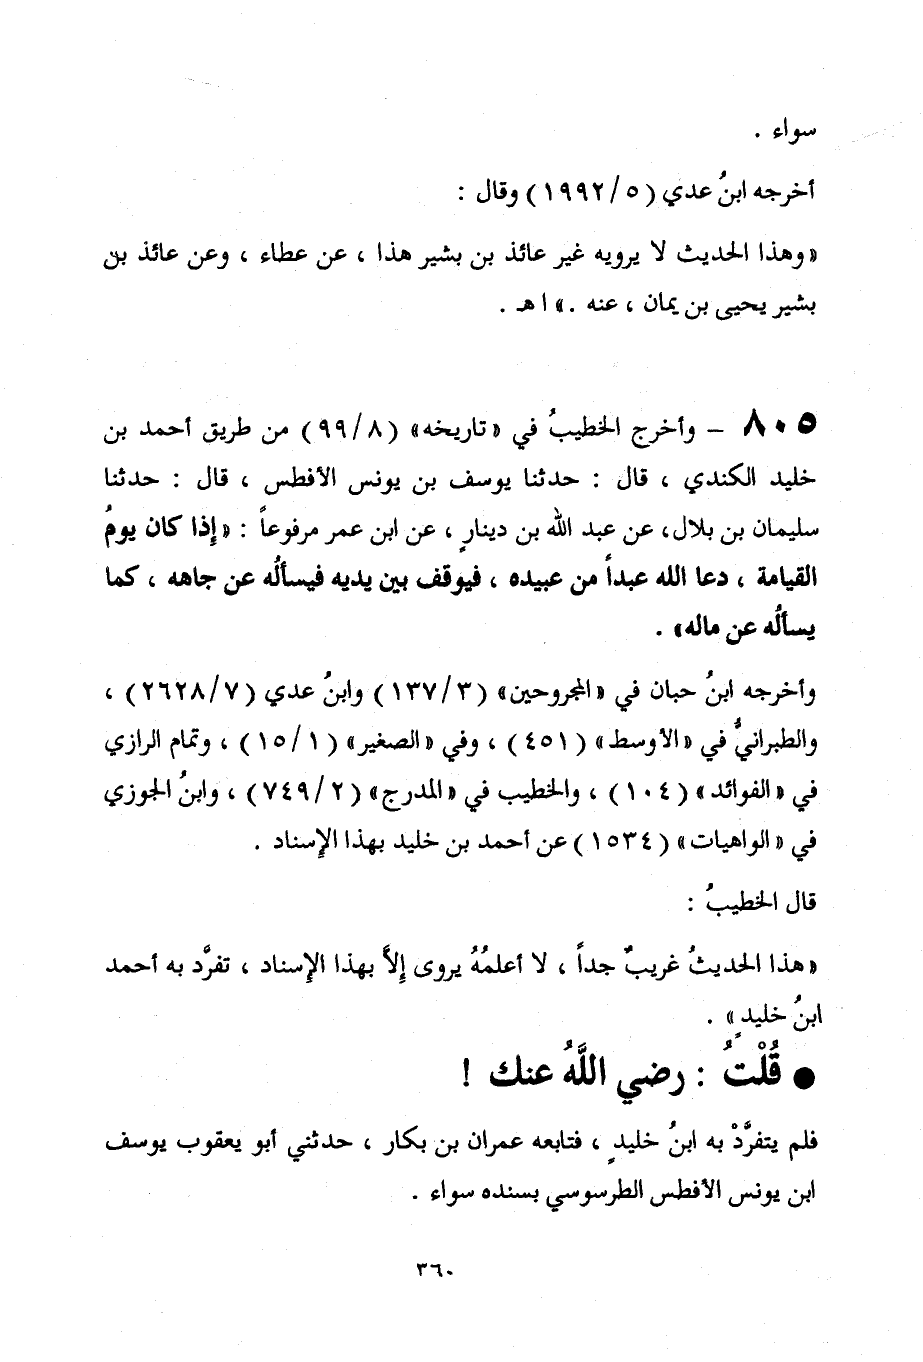 سواء .
أخرجه ابنُ عدي ( ٥/ ١٩٩٢ ) وقال :
«وهذا الحديث لا يرويه غير عائذ بن بشير هذا ، عن عطاء ، وعن عائذ بن
بشير يحيى بن يمان ، عنه .» ا هـ .
٨٠٥ – وأخرج الخطيبُ في «تاريخه» ( ٨/ ٩٩ ) من طريق أحمد بن
خليد الكندي ، قال : حدثنا يوسف بن يونس الأفطس ، قال : حدثنا
سليمان بن بلال، عن عبد الله بن دينارٍ ، عن ابن عمر مرفوعاً : «إذا كان يومُ
القيامة ، دعا الله عبداً من عبيده ، فيوقف بين يديه فيسألُه عن جاهه ، كما
يسألُه عن ماله» .
وأخرجه ابنُ حبان في «المجروحين» ( ٣/ ١٣٧ ) وابنُ عدي ( ٧/ ٢٦٢٨ ) ،
والطبرانيُّ في «الأوسط» ( ٤٥١ ) ، وفي «الصغير» ( ١/ ١٥ ) ، وتمام الرازي
في «الفوائد» ( ١٠٤ ) ، والخطيب في «المدرج» ( ٢/ ٧٤٩ ) ، وابنُ الجوزي
في «الواهيات» ( ١٥٣٤ ) عن أحمد بن خليد بهذا الإسناد .
قال الخطيبُ :
«هذا الحديثُ غريبٌ جداً ، لا أعلمُهُ يروى إلاَّ بهذا الإسناد ، تفرَّد به أحمد
ابنُ خليدٍ» .
● قُلْتُ : رضي اللَّهُ عنك !
فلم يتفرَّدْ به ابنُ خليدٍ ، فتابعه عمران بن بكار ، حدثني أبو يعقوب يوسف
ابن يونس الأفطس الطرسوسي بسنده سواء .
٣٦٠